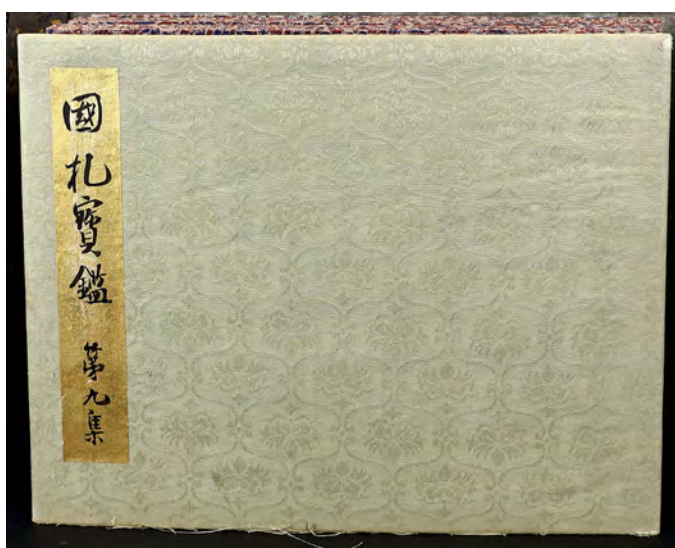 國札寶鑑 第九集